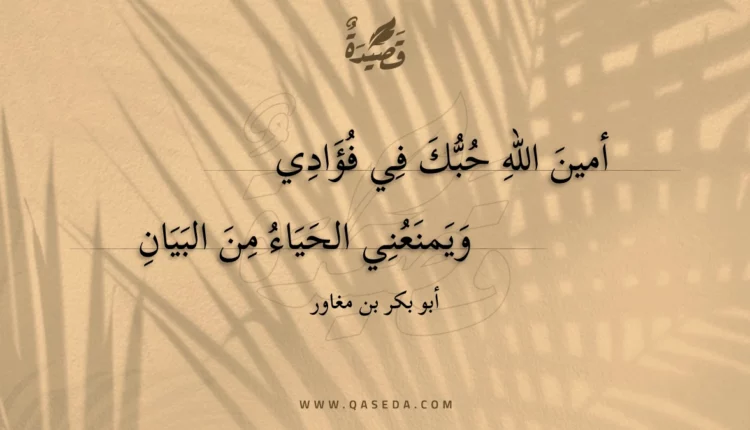 قَصِيدَةٌ
أمينَ اللهِ حُبُّكَ فِي فُؤَادِي
وَيَمنَعُنِي الحَيَاءُ مِنَ البَيَانِ
أبو بكر بن مغاور
WWW.QASEDA.COM